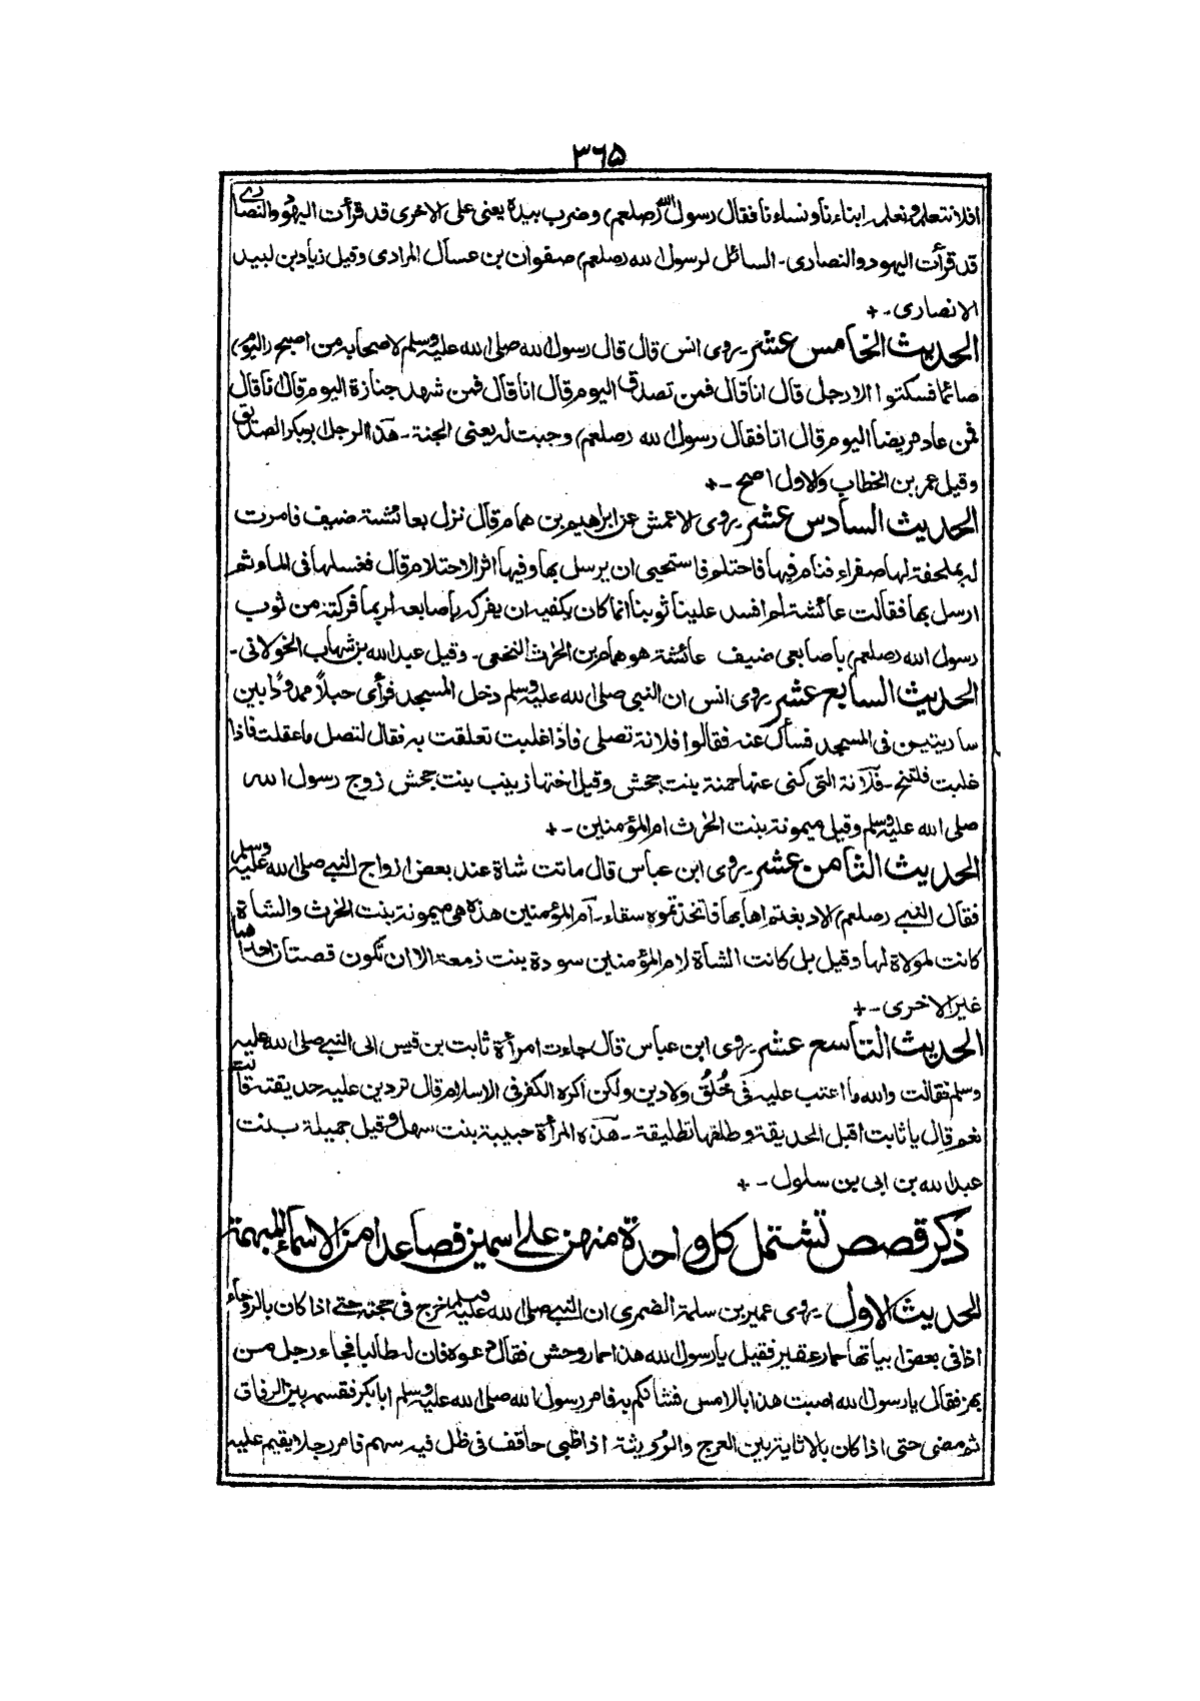 ٣٦٥
افلا نتعلم ونعلمہ ابناءنا ونساءنا فقال رسول اللہ (صلعم) وضرب بيدہ يعنى على الاخرى قد قرأت اليهود والنصارى
قد قرأت اليهود والنصارى - السائل لرسول اللہ (صلعم) صفوان بن عسال المرادى وقيل زياد بن لبيد
الانصارى - +
الحديث الخامس عشر يروى انس قال قال رسول اللہ صلى اللہ عليہ وسلم لاصحابہ من اصبح (اليوم)
صائما فسكتوا الا رجل قال انا قال فمن تصدق اليوم قال انا قال فمن شهد جنازة اليوم قال انا قال
فمن عاد مريضا اليوم قال انا فقال رسول اللہ (صلعم) وجبت لہ يعنى الجنة - هذا الرجل ابوبكر الصديق
وقيل عمر بن الخطاب والاول اصح - +
الحديث السادس عشر يروى الاعمش عن ابراهيم بن همام قال نزل بعائشة ضيف فامرت
لہ بملحفة لها صفراء فنام فيها فاحتلم فاستحيى ان يرسل بها وفيها اثر الاحتلام قال فغسلها فى الماء ثم
ارسل بها فقالت عائشة لم افسد علينا ثوبنا انما كان يكفيہ ان يفركہ باصابعہ لربما فركتہ من ثوب
رسول اللہ (صلعم) باصابعى ضيف عائشة هو همام بن الحرث النخعى - وقيل عبد اللہ بن شهاب الخولانى -
الحديث السابع عشر يروى انس ان النبى صلى اللہ عليہ وسلم دخل المسجد فرأى حبلاً ممدودًا بين
ساريتين فى المسجد فسأل عنہ فقالوا فلانة تصلى فاذا غلبت تعلقت بہ فقال لتصل ما عقلت فاذا
غلبت فلتنم - فلانة التى كنى عنها حمنة بنت جحش وقيل اختها زينب بنت جحش زوج رسول اللہ
صلى اللہ عليہ وسلم وقيل ميمونة بنت الحرث ام المؤمنين - +
الحديث الثامن عشر يروى ابن عباس قال ماتت شاة عند بعض ازواج النبى صلى اللہ عليہ وسلم
فقال النبى (صلعم) الا دبغتم اهابها فاتخذتموہ سقاء - ام المؤمنين هذہ هى ميمونة بنت الحرث والشاة
كانت لمولاة لها وقيل بل كانت الشاة لام المؤمنين سودة بنت زمعة الا ان تكون قصتان احداهما
غير الاخرى - +
الحديث التاسع عشر يروى ابن عباس قال جاءت امرأة ثابت بن قيس الى النبى صلى اللہ عليہ
وسلم فقالت واللہ ما اعتب عليہ فى خُلُق ولا دين ولكن اكرہ الكفر فى الاسلام قال تردين عليہ حديقتہ قالت
نعم قال يا ثابت اقبل الحديقة وطلقها تطليقة - هذہ المرأة حبيبة بنت سهل وقيل جميلة بنت
عبد اللہ بن ابى بن سلول - +
ذكر قصص تشتمل كل واحدة منهن على اسمين فصاعدا من الاسماء المبهمة
الحديث الاول يروى عمير بن سلمة الضمرى ان النبى صلى اللہ عليہ وسلم خرج فى حجتہ حتى اذا كان بالروحاء
اذا فى بعض ابياتها حمار عقير فقيل يا رسول اللہ هذا حمار وحش فقال دعوہ فان لہ طالبا فجاء رجل من
بهز فقال يا رسول اللہ اصبت هذا بالامس فشانكم بہ فامر رسول اللہ صلى اللہ عليہ وسلم ابا بكر فقسمہ بين الرفاق
ثم مضى حتى اذا كان بالاثاية بين العرج والرُويثة اذا ظبى حاقف فى ظل فيہ سهم فامر رجلا يقيم عليہ